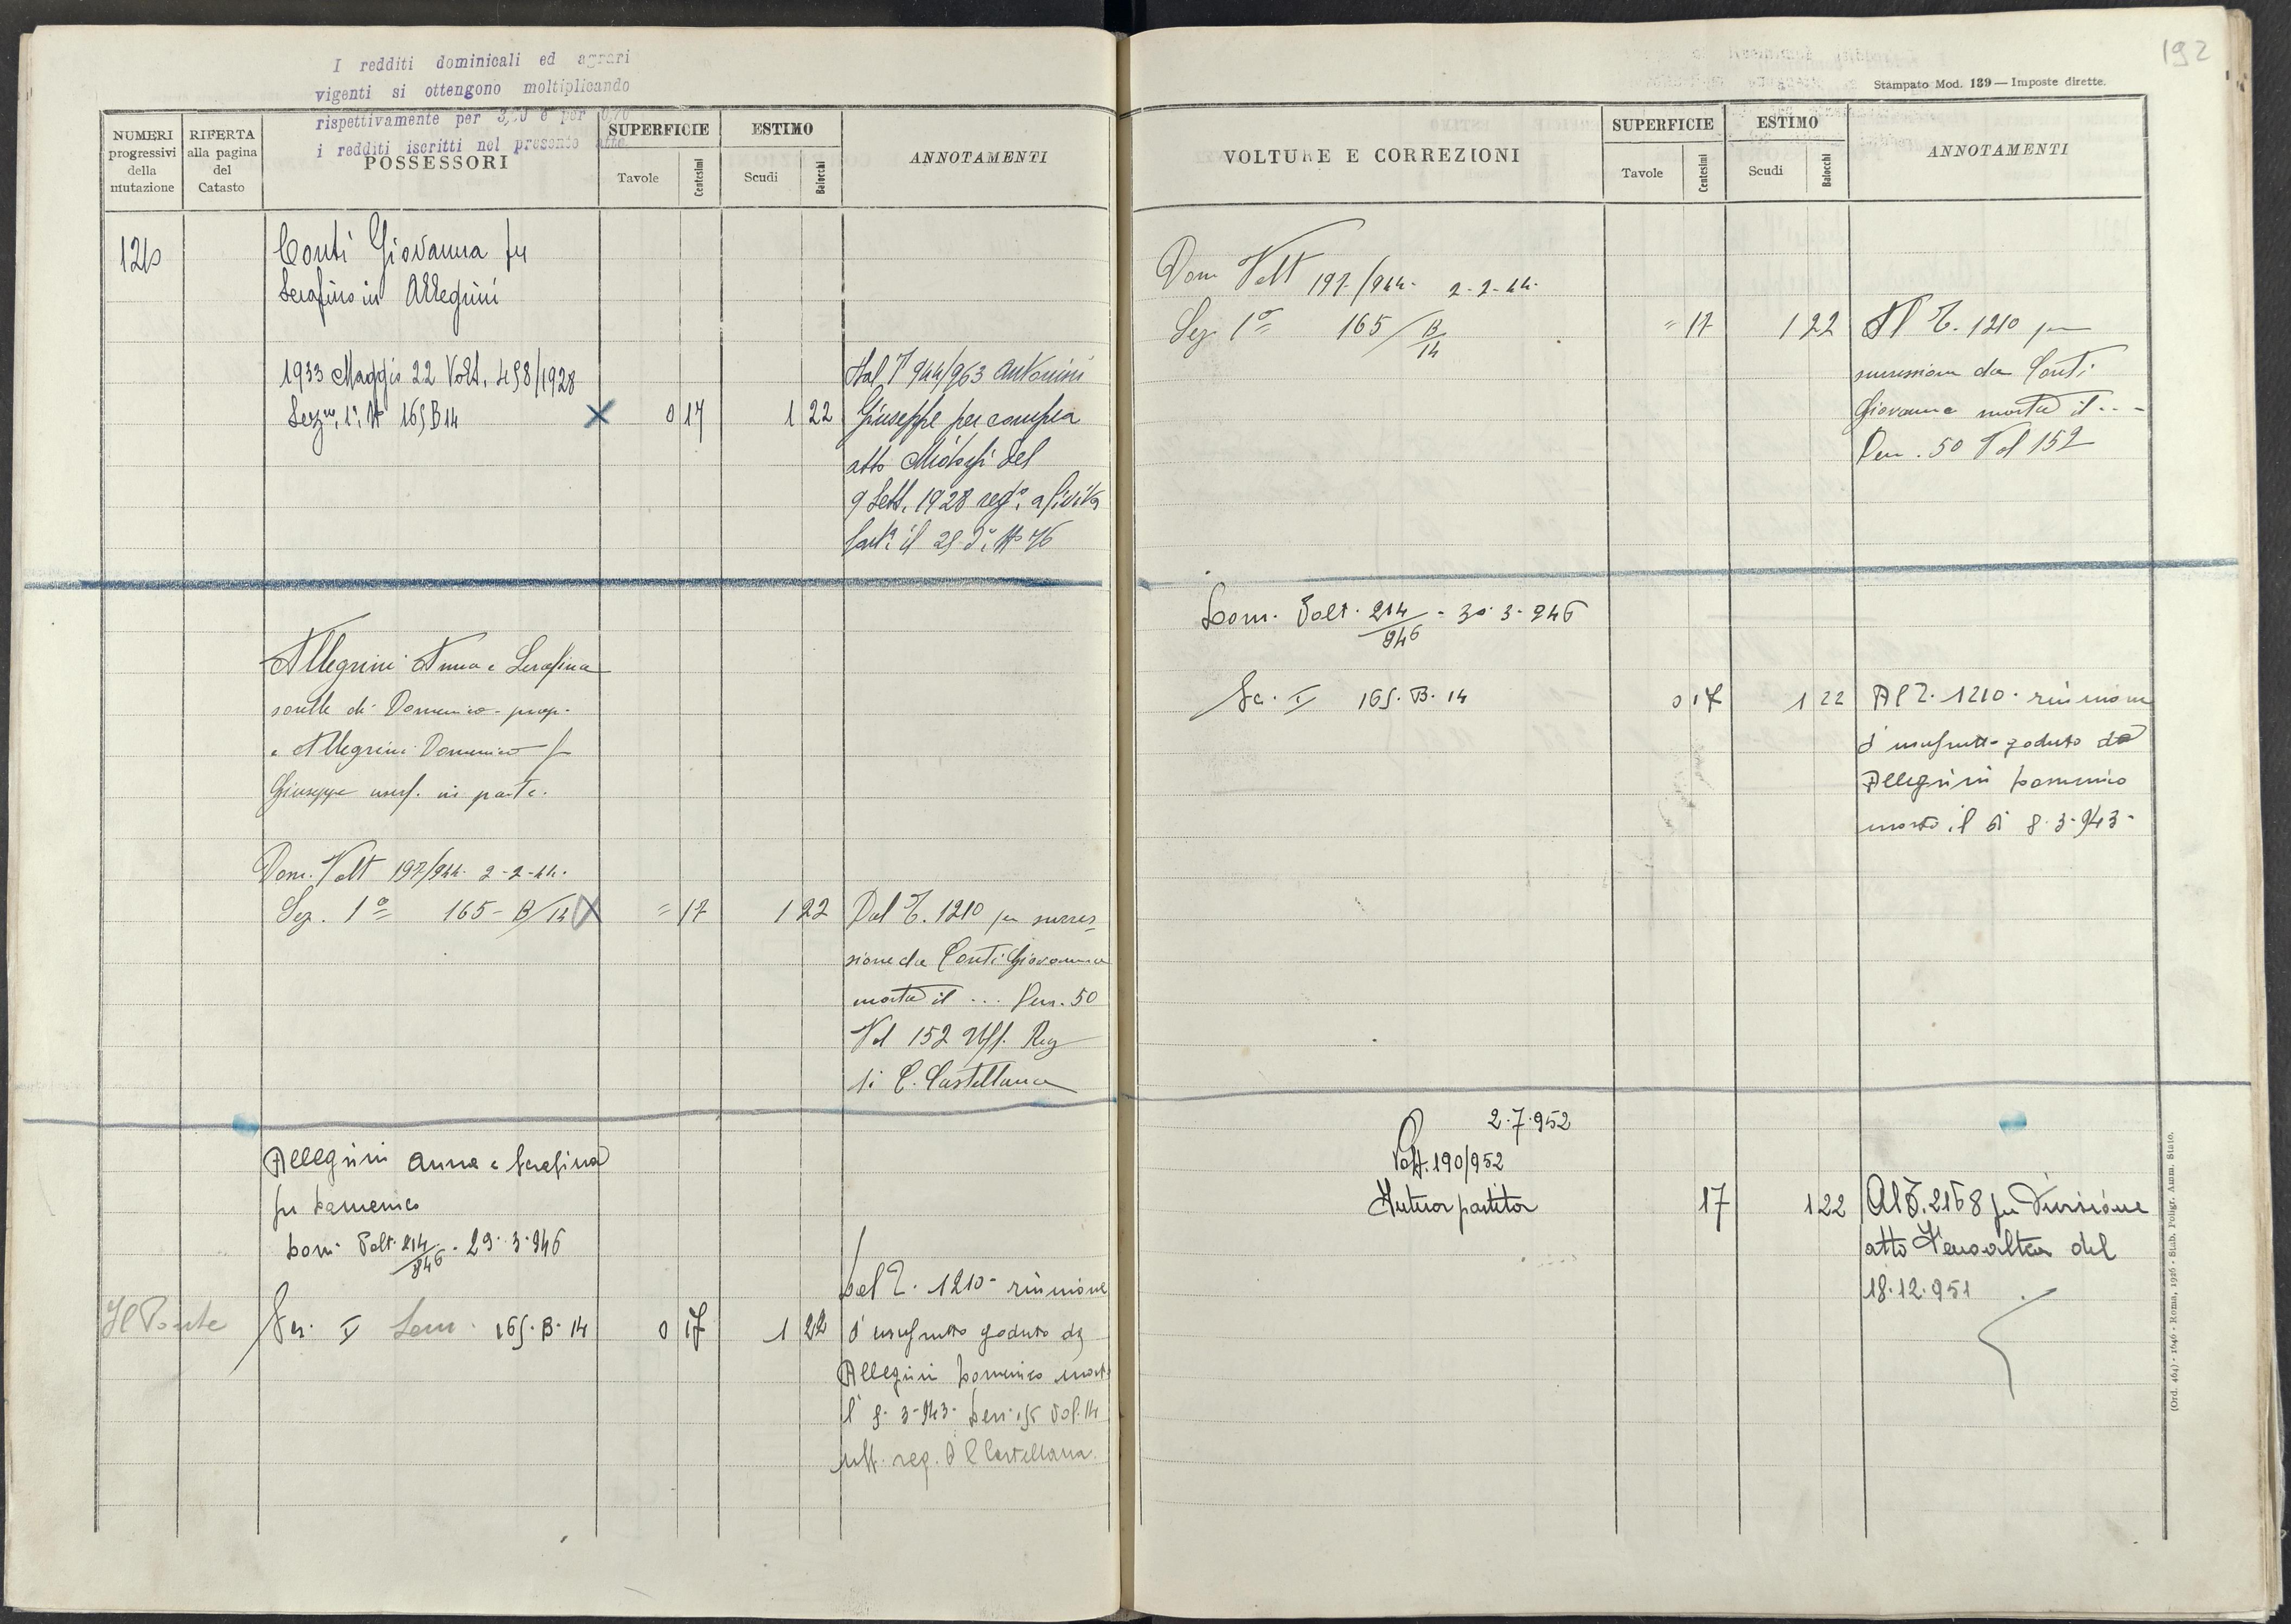 I redditi dominicali ed agrari
vigenti si ottengono moltiplicando
rispettivamente per 3,20 e per 0,70
i redditi iscritti nel presente atto
NUMERI progressivi della mutazione
RIFERTA alla pagina del Catasto
POSSESSORI
SUPERFICIE
Tavole
Centesimi
ESTIMO
Scudi
Baiocchi
ANNOTAMENTI
1210
Conti Giovanna fu
Serafino in Allegrini
1933 Maggio 22 Volt. 498/1928
Sezne 1ª N 165 B 14 X 0 17 1 22
Dal T 944/963 Antonini
Giuseppe per compra
atto del
9 Sett. 1928 regº a Civita
Castª il 25 dº Nº 76
Allegrini Anna e Serafina
sorelle di Domenico - prop.
e Allegrini Domenico fu
Giuseppe usuf. in parte.
Dom. Volt 197/944. 2-2-44.
Sez. 1ª 165 - B/14 X = 17 1 22
Dal T. 1210 per succes
sione da Conti Giovanna
morta il ... Den. 50
Vol 152 Uff. Reg
di C. Castellana
Allegrini Anna e Serafina
fu Domenico
Dom. Volt. 214/946 - 29.3.946
Il Ponte
Sez. I Sem. 165. B. 14 0 17 1 22
Dal T. 1210 - riunione
d'usufrutto goduto da
Allegrini Domenico morto
l' 8-3-943. Den. Vol. 14
uff. reg. di C Castellana.
192
Stampato Mod. 139 — Imposte dirette.
VOLTURE E CORREZIONI
SUPERFICIE
Tavole
Centesimi
ESTIMO
Scudi
Baiocchi
ANNOTAMENTI
Dom Volt 197/944. 2-2-44.
Sez 1ª 165/B/14 = 17 1 22
Al T. 1210 per
successione da Conti
Giovanna morta il ...
Den. 50 Vol 152
Dom. Volt. 214/946 - 30.3.946
Sez. I 165. B. 14 0 17 1 22
Al T. 1210. riunione
d'usufrutto goduto da
Allegrini Domenico
morto il dì 8.3.943.
2.7.952
Volt. 190/952
Intera partita 17 1 22
Al T. 2168 per Divisione
atto del
18.12.951
(Ord. 464) - 1646 - Roma, 1926 - Stab. Poligr. Amm. Stato.